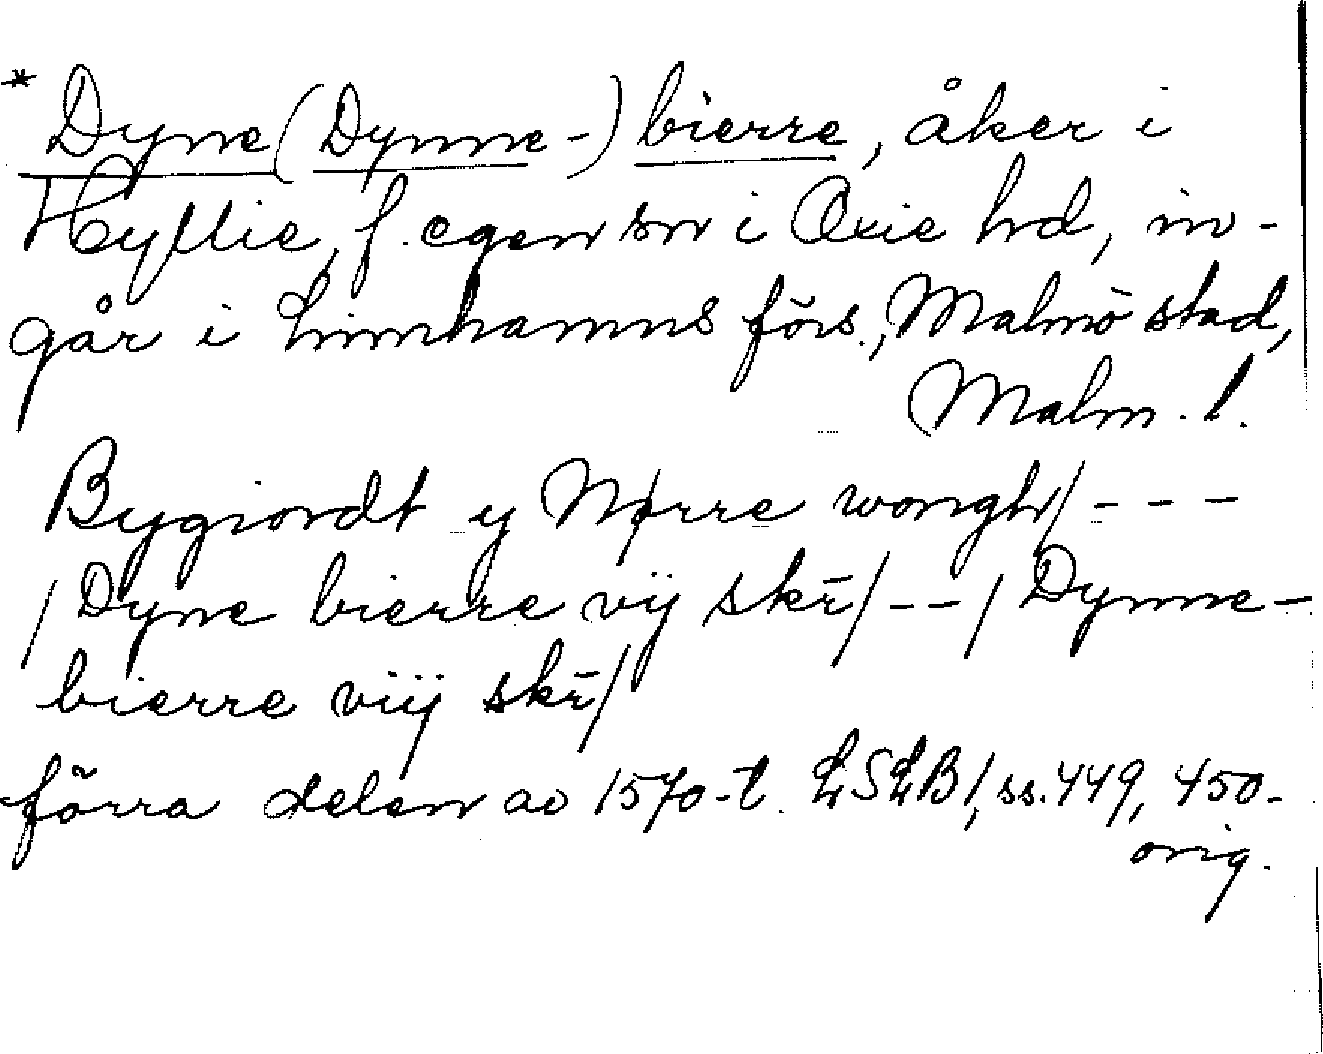 * Dyne (Dynne-) bierre, åker i
Hyllie, f. egen sn i Oxie hd, in-
går i Limhamns förs., Malmö stad,
Malm. l.
Bygiordt y Nørre wongh/ - - -
/ Dyne bierre vij skr̄/ - - / Dynne-
bierre viij skr̄/
förra delen av 1570-t. LSLB 1, ss. 449, 450-
orig.